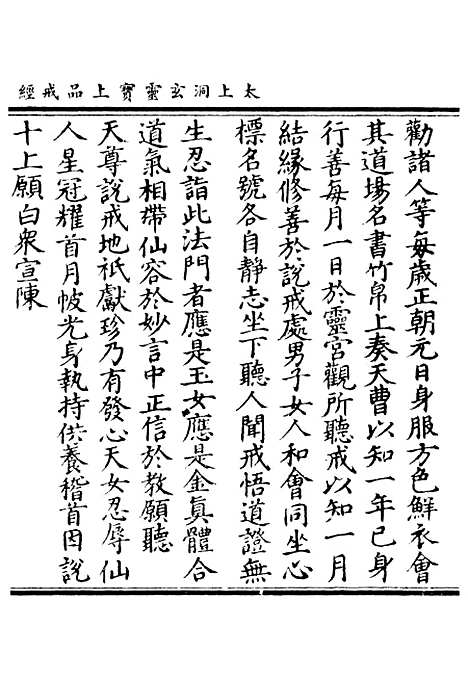 太上洞玄靈寶上品戒經
勸諸人等每歲正朝元日身服方色鮮衣會
其道場名書竹帛上奏天曹以知一年已身
行善每月一日於靈宮觀所聽戒以知一月
結緣修善於說戒處男子女人和會同坐心
標名號各自靜志坐下聽人聞戒悟道證無
生忍詣此法門者應是玉女應是金真體合
道氣相帶仙容於妙言中正信於教願聽
天尊說戒地祇獻珍乃有發心天女忍辱仙
人星冠耀首月帔光身執持供養稽首因說
十上願白眾宣陳